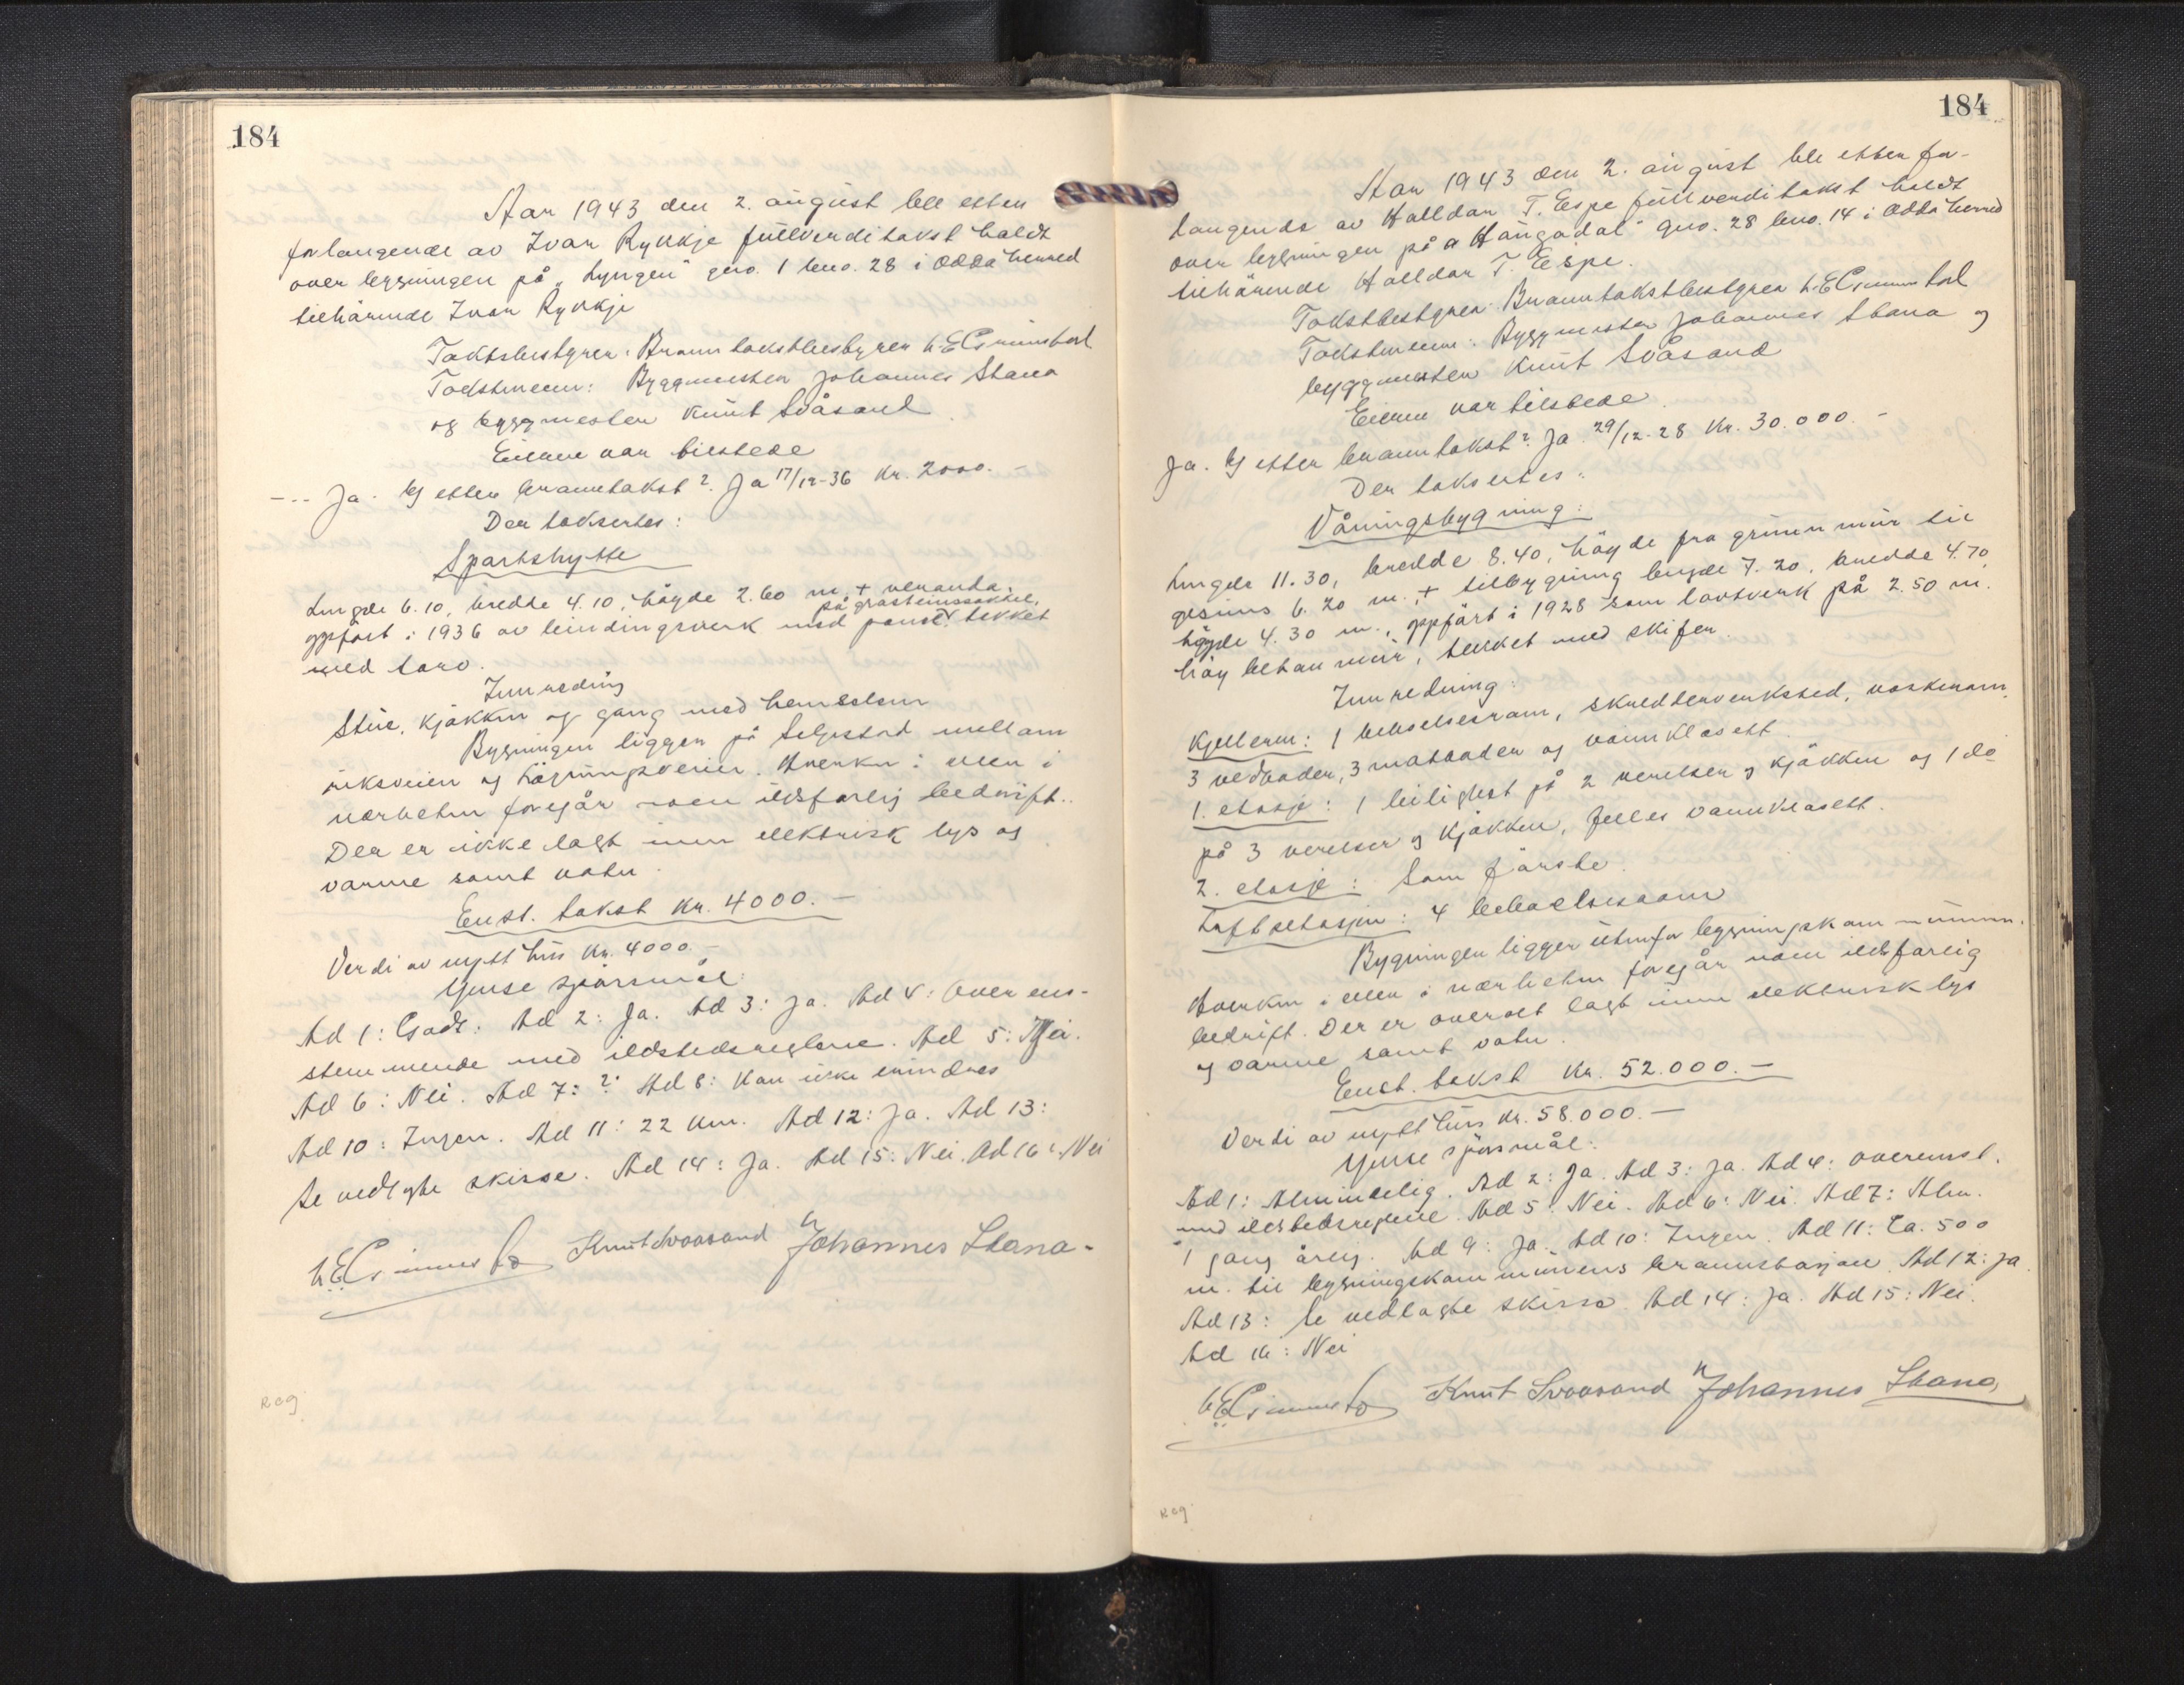 184
Aar 1943 den 2. august ble etter
forlangende av Ivar Rykkje fullverditakst holdt
over bygningen på „Lyngen" gno. 1 bno. 28 i Odda herred
tilhørende Ivar Rykkje
Takstbestyrer: Branntakstbestyrer
Takstmenn: Byggmester Johannes Stana
og byggmester Knut Svåsand
Eieren var tilstede
--- Ja. Ny etter branntakst? Ja 17/12-36 kr. 2000.-
Der taksertes:
Sportshytte
Lengde 6.10, bredde 4.10, høyde 2.60 m, + veranda,
på gråsteinssokkel,
oppført i 1936 av bindingsverk med panel tekket
med torv.
Innredning
Stue, kjøkken og gang med hems
Bygningen ligger på Seljestad mellom
riksveien og høgningsveien. Hverken i eller i
nærheten foregår noen ildsfarlig bedrift.
Der er ikke lagt inn elektrisk lys og
varme samt vatn.
Enst. takst kr. 4000.-
Verdi av nytt hus kr. 4000.-
Ymse spörsmål
Ad 1: Godt. Ad 2: Ja. Ad 3: Ja. Ad 4: Overens-
stemmende med ildstedsreglene. Ad 5: Nei.
Ad 6: Nei. Ad 7: ? Ad 8: Kan ikke erindres
Ad 10: Ingen. Ad 11: 22 km. Ad 12: Ja. Ad 13:
Se vedlagte skisse. Ad 14: Ja. Ad 15: Nei. Ad 16: Nei
Knut Svaasand Johannes Stana
Reg
184
Aar 1943 den 2. august ble etter for-
langende av Halldor T. Espe fullverditakst holdt
over bygningen på „Haugadal" gno. 28 bno. 14 i Odda herred
tilhørende Halldor T. Espe.
Takstbestyrer: Branntakstbestyrer
Takstmenn: Byggmester Johannes Stana og
byggmester Knut Svåsand
Eieren var tilstede
Ja. Ny etter branntakst? Ja. 29/12-28 kr. 30.000.-
Der taksertes:
Våningsbygning:
Lengde 11.30, bredde 8.40, høyde fra grunnmur til
gesims 6.20 m., + tilbygning lengde 7.20, bredde 4.70
høyde 4.30 m., oppført i 1928 som laftverk på 2.50 m.
høy betonmur, tekket med skifer.
Innredning:
Kjelleren: 1 beboelsesrom, skredderverksted, vaskerom,
3 vedboder, 3 matboder og vannklosett.
1. etasje: 1 leilighet på 2 verelser og kjøkken og 1 do
på 3 verelser og kjøkken, felles vannklosett.
2. etasje: Som første.
Loftsetasjen: 4 beboelsesrom
Bygningen ligger utenfor bygningskommunen.
Hverken i eller i nærheten foregår noen ildsfarlig
bedrift. Der er overalt lagt inn elektrisk lys
og varme samt vatn.
Enst. takst kr. 52.000.-
Verdi av nytt hus kr. 58.000.-
Ymse spörsmål:
Ad 1: Almindelig. Ad 2: Ja. Ad 3: Ja. Ad 4: overenst.
med ildstedsreglene. Ad 5: Nei. Ad 6: Nei. Ad 7: Alm.
1 gang årlig. Ad 9: Ja. Ad 10: Ingen. Ad 11: Ca. 500
m. til bygningskommunens brannstasjon. Ad 12: Ja
Ad 13: Se vedlagte skisse. Ad 14: Ja. Ad 15: Nei.
Ad 16: Nei
Knut Svaasand Johannes Stana
Reg